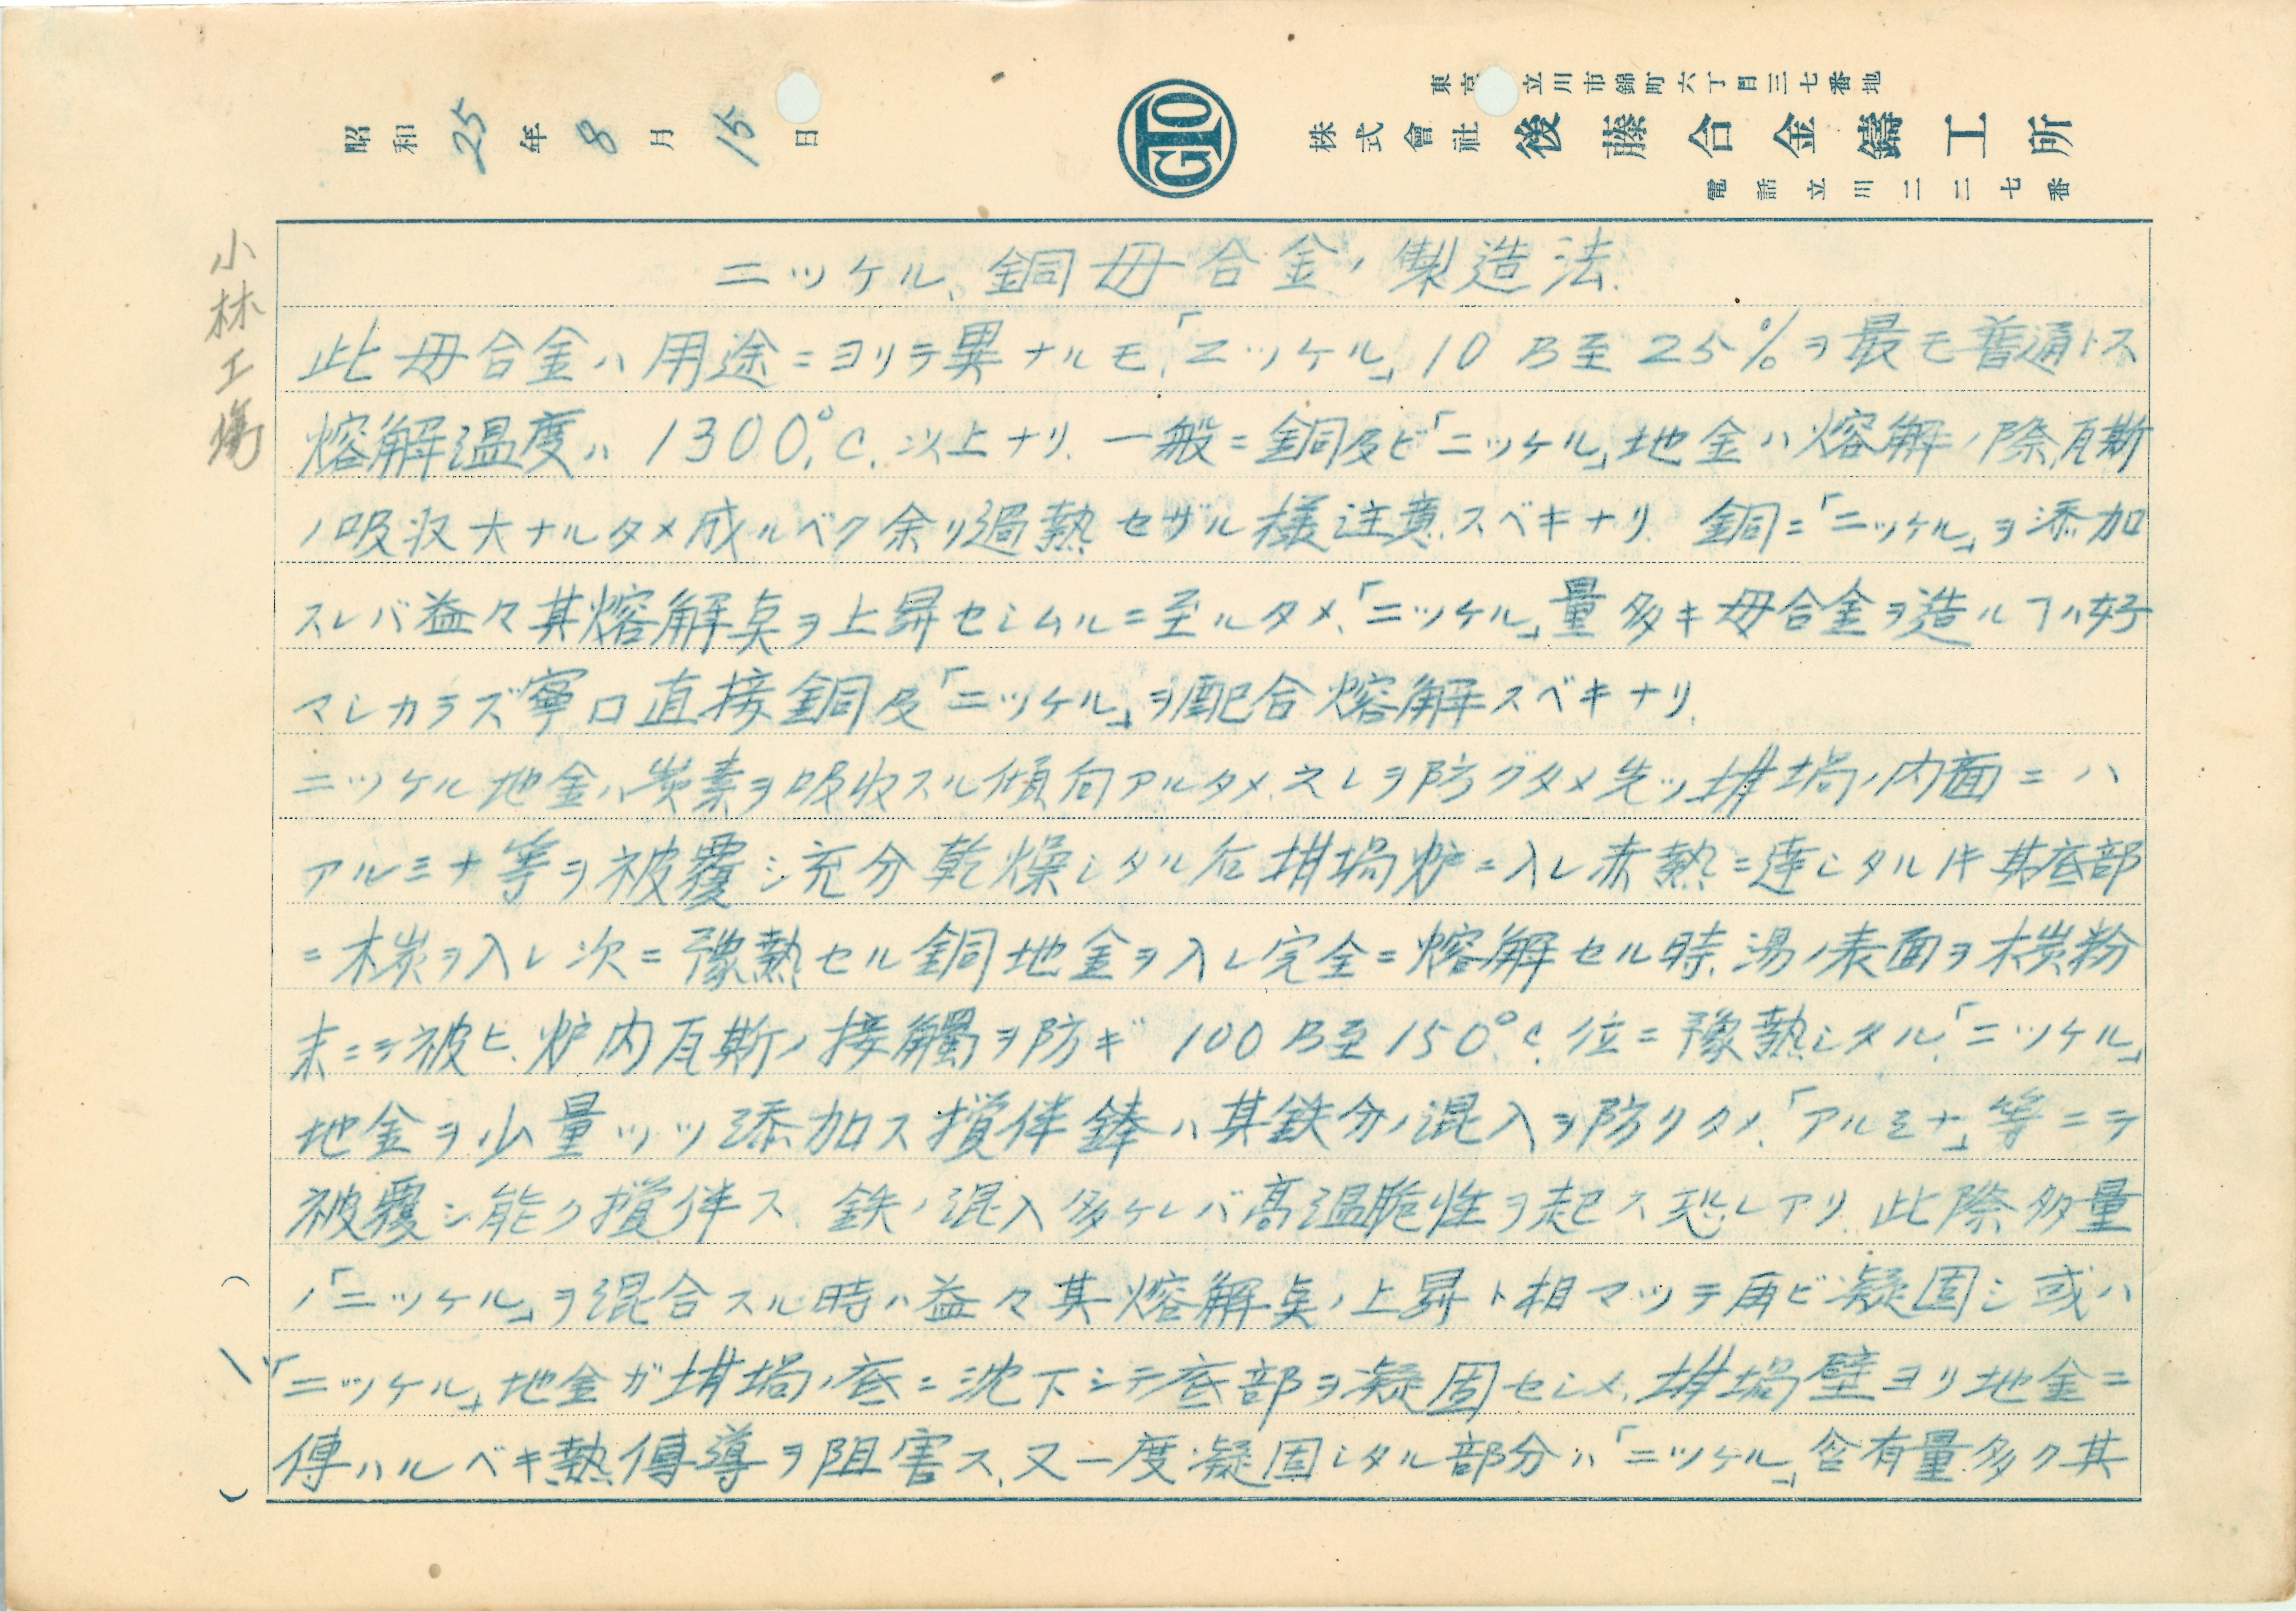 東京 立川市錦町六丁目三七番地
株式會社後藤合金鑄工所
電話立川二二七番
GTO
昭和25年8月15日
小林工場
ニッケル、銅母合金ノ製造法.
此母合金ハ用途ニヨリテ異ナルモ、「ニッケル」10乃至25%ヲ最モ普通トス
熔解温度ハ1300°C.以上ナリ.一般ニ銅及ビ「ニッケル」地金ハ熔解ノ際瓦斯
ノ吸収大ナルタメ成ルベク余リ過熱セザル様注意スベキナリ.銅ニ「ニッケル」ヲ添加
スレバ益々其熔解点ヲ上昇セシムルニ至ルタメ、「ニッケル」量多キ母合金ヲ造ルヿハ好
マシカラズ寧口直接銅及「ニッケル」ヲ配合熔解スベキナリ.
ニッケル地金ハ炭素ヲ吸収スル傾向アルタメ之レヲ防グタメ先ッ坩堝ノ内面ニハ
アルミナ等ヲ被覆シ充分乾燥シタル后坩堝炉ニ入レ赤熱ニ達シタル片其底部
ニ木炭ヲ入レ次ニ豫熱セル銅地金ヲ入レ完全ニ熔解セル時、湯ノ表面ヲ木炭粉
末ニテ被ヒ、炉内瓦斯ノ接觸ヲ防ギ 100乃至150°C.位ニ豫熱シタル、「ニッケル」
地金ヲ少量ッツ添加ス攪伴鋒ハ其鉄分ノ混入ヲ防グタメ、「アルミナ」等ニテ
被覆シ能ク攪伴ス.鉄ノ混入多ケレバ高温脆性ヲ起ス恐レアリ.此際多量
ノ「ニッケル」ヲ混合スル時ハ益々其熔解点ノ上昇ト相マッテ再ビ凝固シ或ハ
「ニッケル」地金ガ坩堝ノ底ニ沈下シテ底部ヲ凝固セシメ、坩堝壁ヨリ地金ニ
傳ハルベキ熱傳導ヲ阻害ス、又一度凝固シタル部分ハ「ニッケル」含有量多ク其